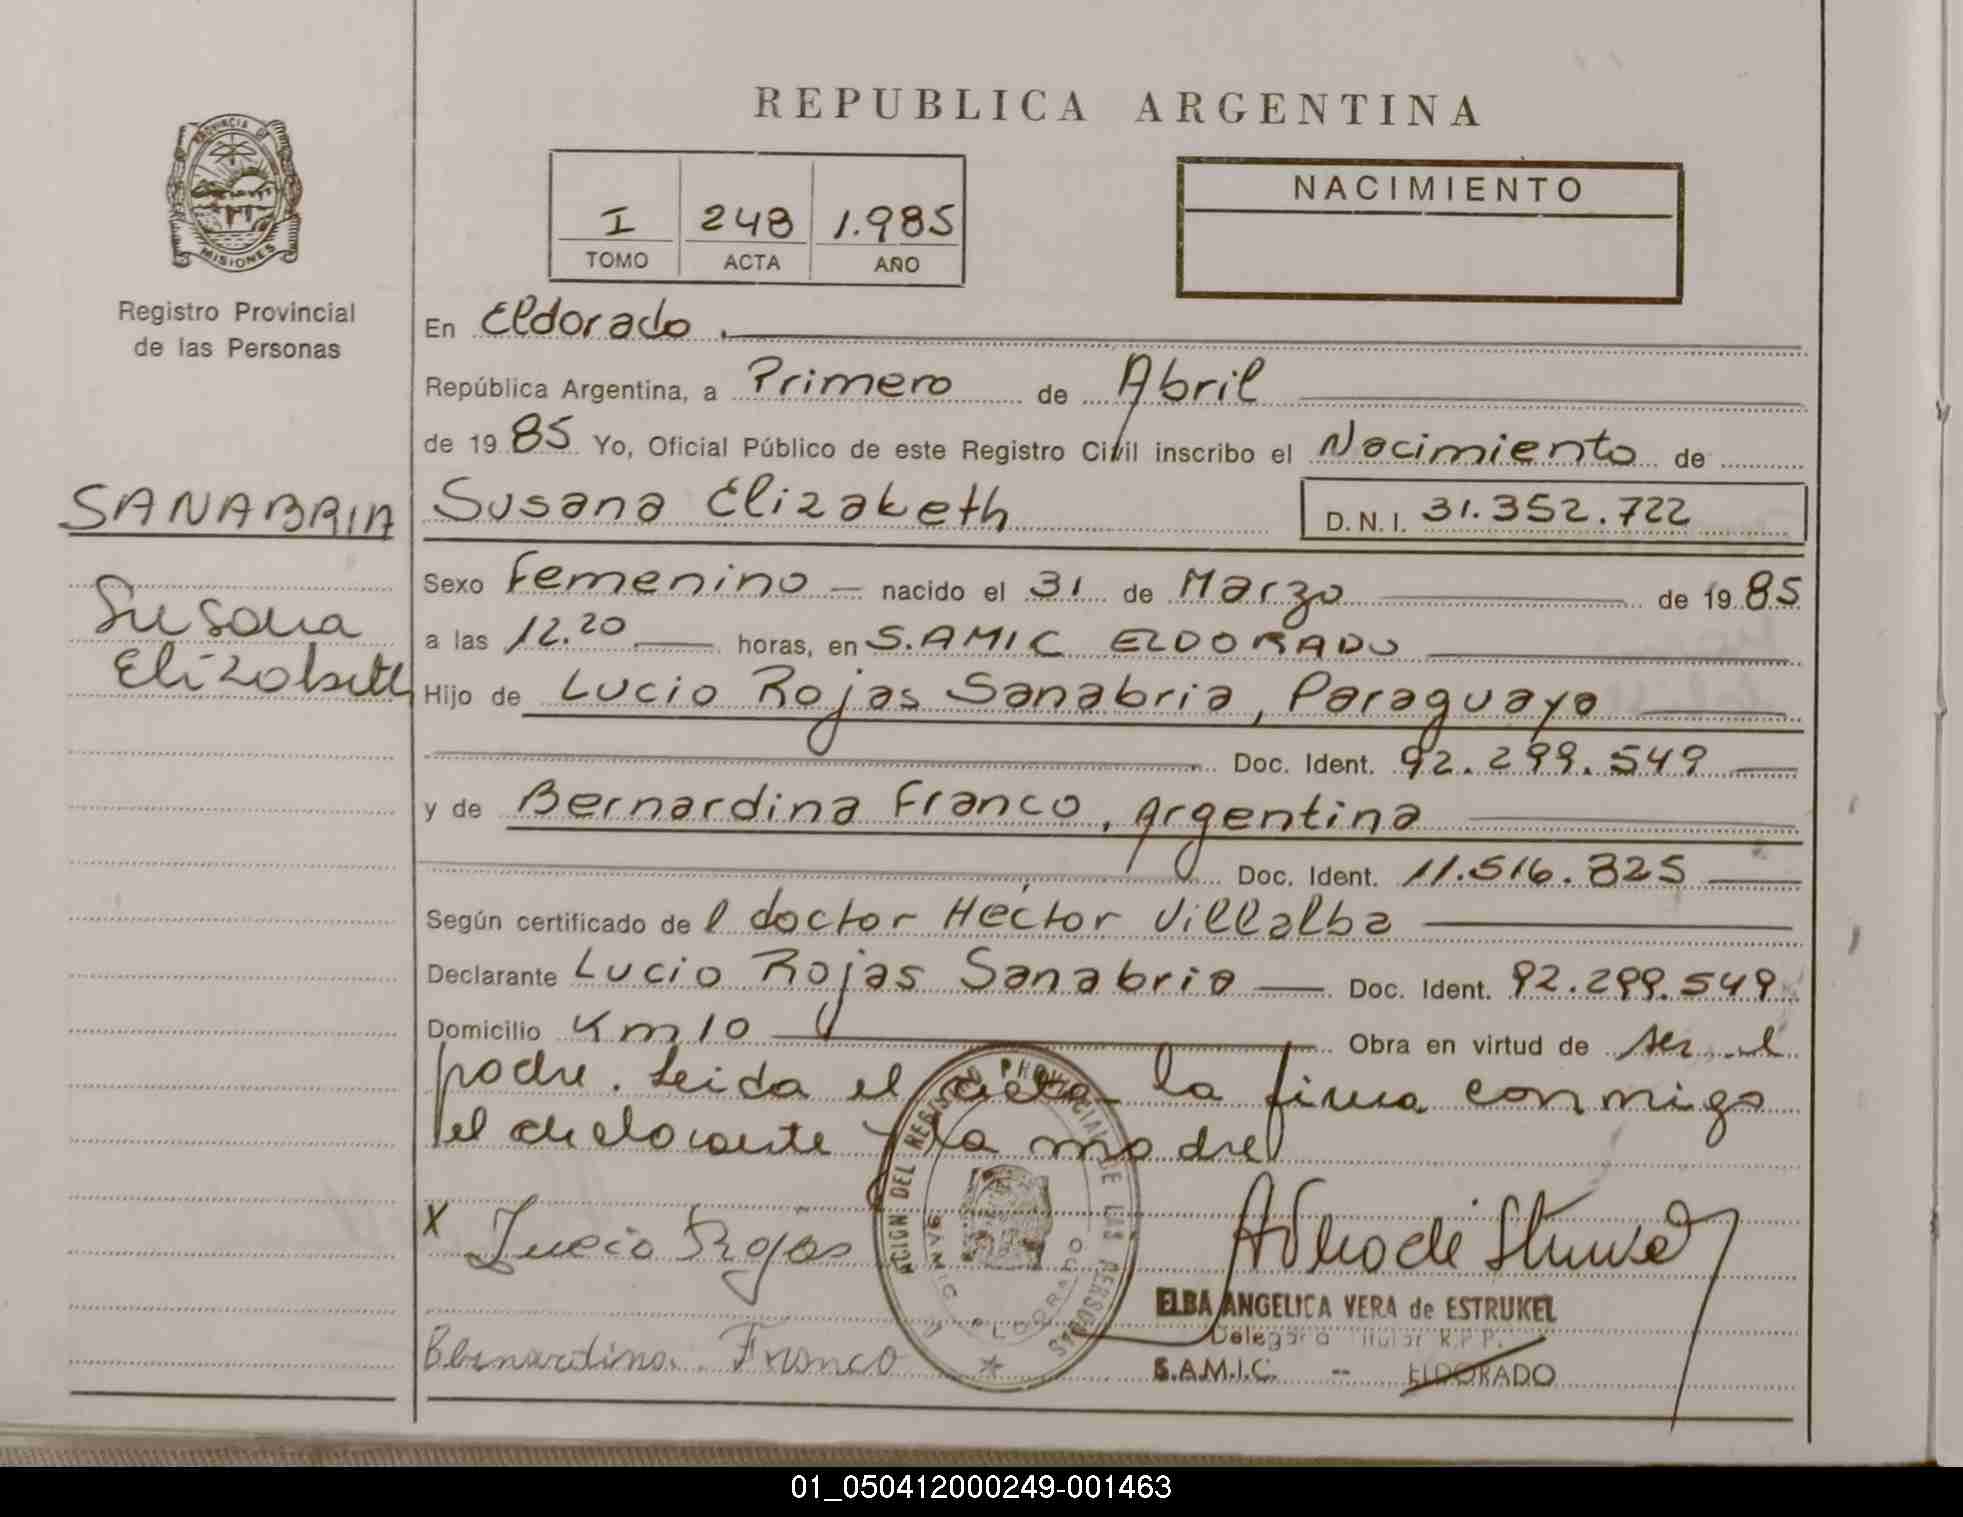 REPUBLICA ARGENTINA
PROVINCIA DE MISIONES
Registro Provincial
de las Personas
I 248 1.985
TOMO ACTA AÑO
NACIMIENTO
En Eldorado.
República Argentina, a Primero de Abril
de 1985 Yo, Oficial Público de este Registro Civil inscribo el Nacimiento de
SANABRIA
Susana
Elizabeth
Susana Elizabeth D.N.I. 31.352.722
Sexo Femenino nacido el 31 de Marzo de 1985
a las 12.20 horas, en S.AMIC ELDORADO
Hijo de Lucio Rojas Sanabria, Paraguayo
Doc. Ident. 92.299.549
y de Bernardina Franco, Argentina
Doc. Ident. 11.516.825
Según certificado de l doctor Héctor Villalba
Declarante Lucio Rojas Sanabria Doc. Ident. 92.299.549
Domicilio Km 10 Obra en virtud de ser el
padre. Leida el acta la firma conmigo
el declarante y la madre
X Lucio Rojas
Bernardina Franco
DEL REGISTRO PROVINCIAL DE LAS PERSONAS
ELBA ANGELICA VERA de ESTRUKEL
Delegada Titular R.P.P.
S.A.M.I.C. -- ELDORADO
01_050412000249-001463